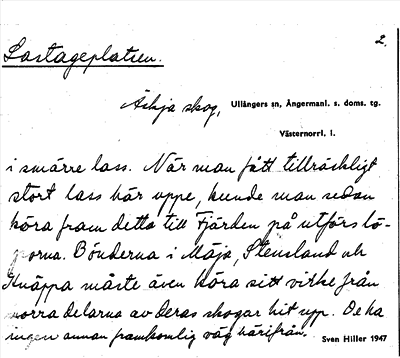 2.
Lastageplatsen.
Äskja skog, Ullångers sn, Ångermanl. s. doms. tg.
Västernorrl. l.
i smärre lass. När man fått tillräckligt
stort lass här uppe, kunde man sedan
köra fram detta till Fjärden på utförslö-
porna. Bönderna i Mäja, Stensland och
Knäppa måste även köra sitt virke från
norra delarna av deras skogar hit upp. De ha
ingen annan framkomlig väg härifrån.
Sven Hiller 1947